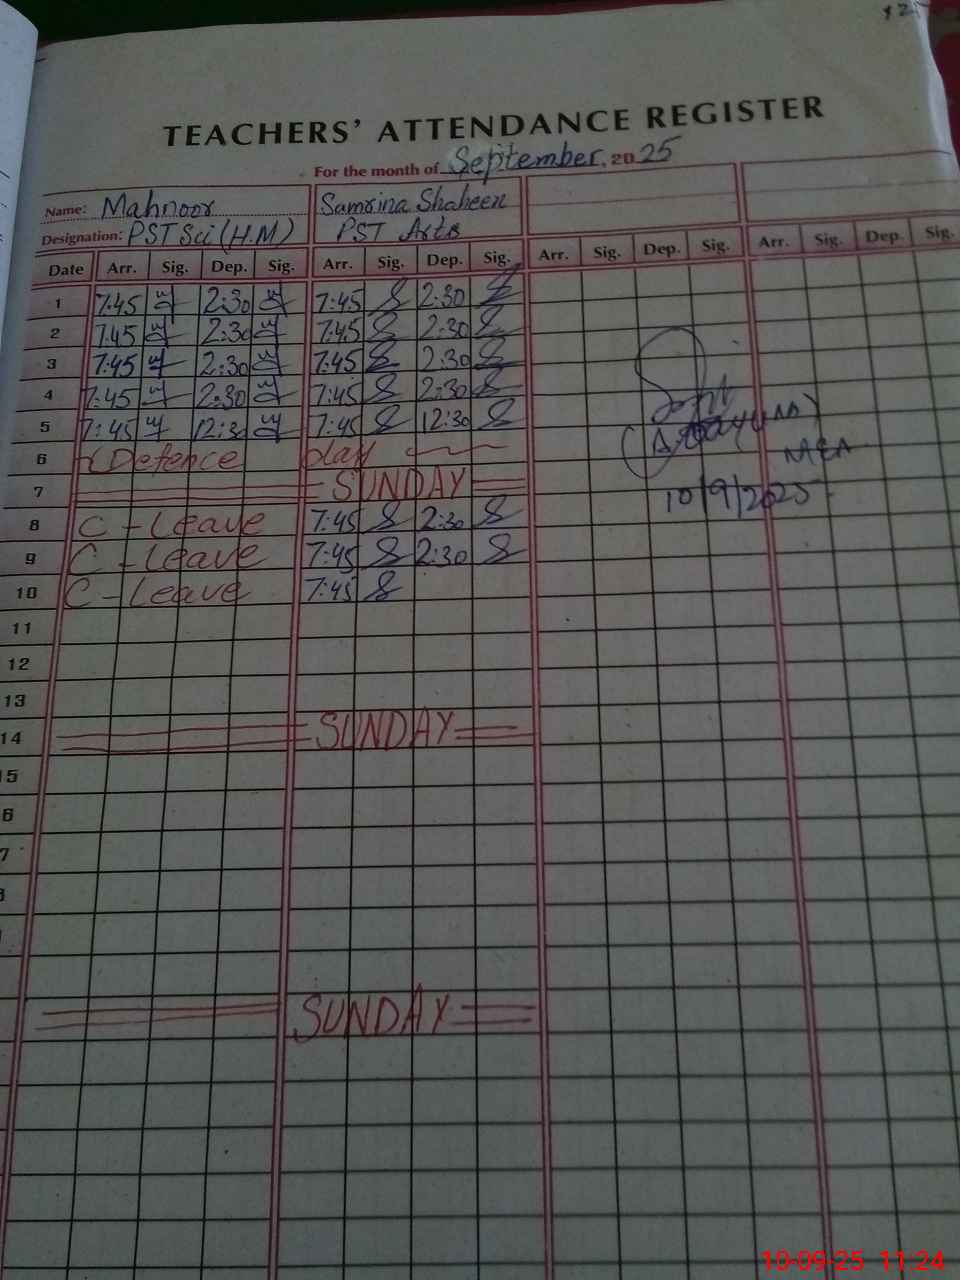 TEACHERS' ATTENDANCE REGISTER
For the month of September, 2025
Name: Mahnoor Samrina Shaheen
Designation: PST Sci (H.M) PST Arts
Date Arr. Sig. Dep. Sig. Arr. Sig. Dep. Sig. Arr. Sig. Dep. Sig. Arr. Sig. Dep. Sig.
1 7:45 2:30 7:45 2:30
2 7:45 2:30 7:45 2:30
3 7:45 2:30 7:45 2:30
4 7:45 2:30 7:45 2:30
5 7:45 12:30 7:45 12:30
6 Defence
7 SUNDAY
8 C-Leave 7:45 2:30
9 C-Leave 7:45 2:30
10 C-Leave 7:45
11
12
13
14 SUNDAY
15
SUNDAY
MEA
10/9/2025
10-09-25 11:24